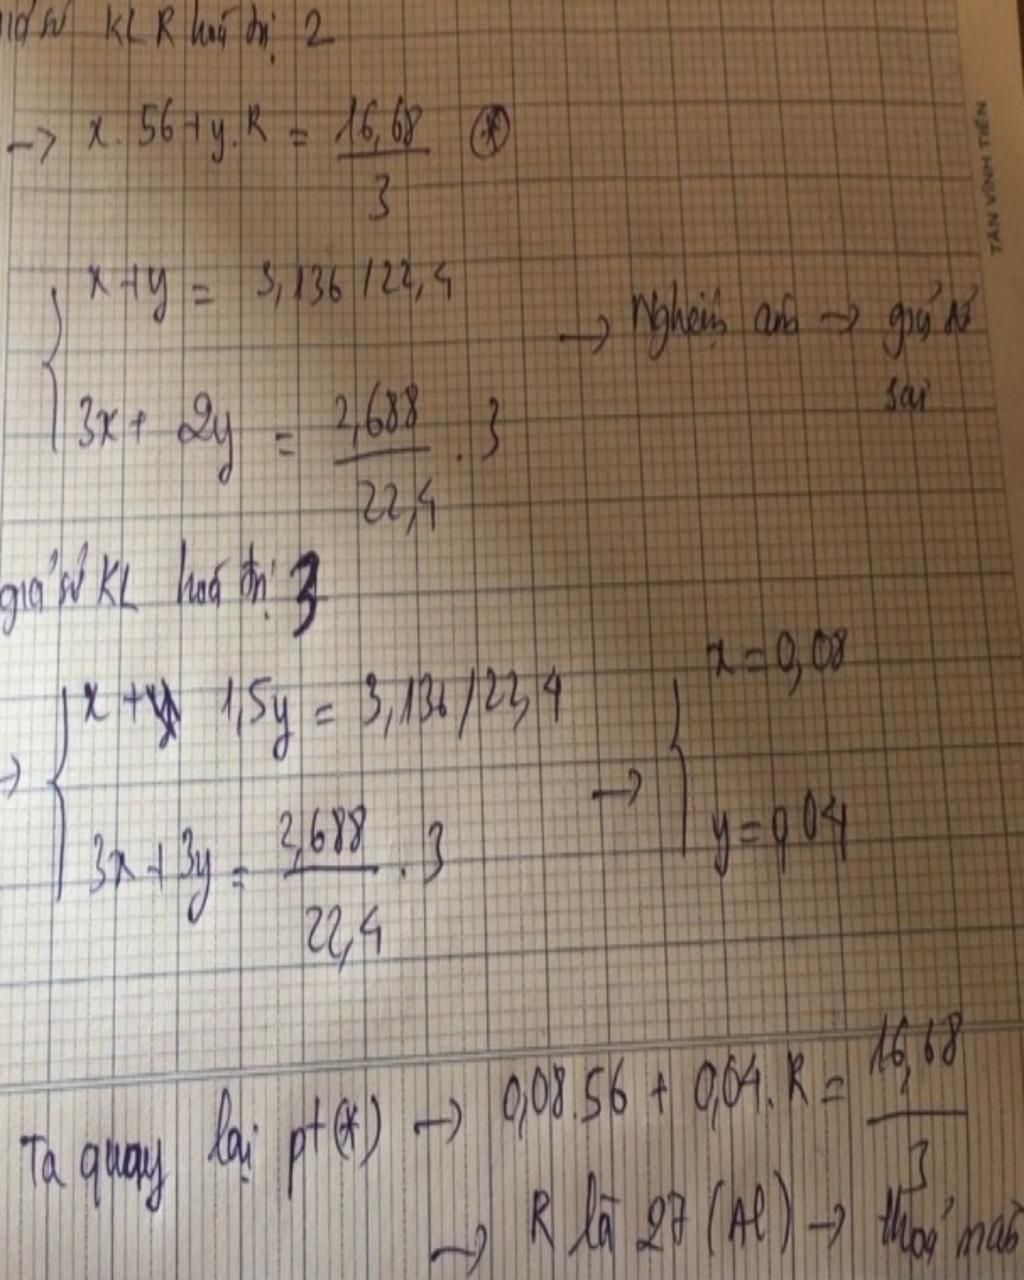 giả sử KL R hoá trị 2
→ x.56 + y.R = 16,68 / 3 (*)
x + y = 3,136 / 22,4
3x + 2y = 2,688 / 22,4 . 3
→ Nghiệm âm → giả sử sai
giả sử KL hoá trị 3
→ x + 1,5y = 3,136 / 22,4
3x + 3y = 2,688 / 22,4 . 3
→ x = 0,08
y = 0,04
Ta quay lại pt(*) → 0,08.56 + 0,04.R = 16,68 / 3
→ R là 27 (Al) → thoả mãn
TÂN VĨNH TIẾN